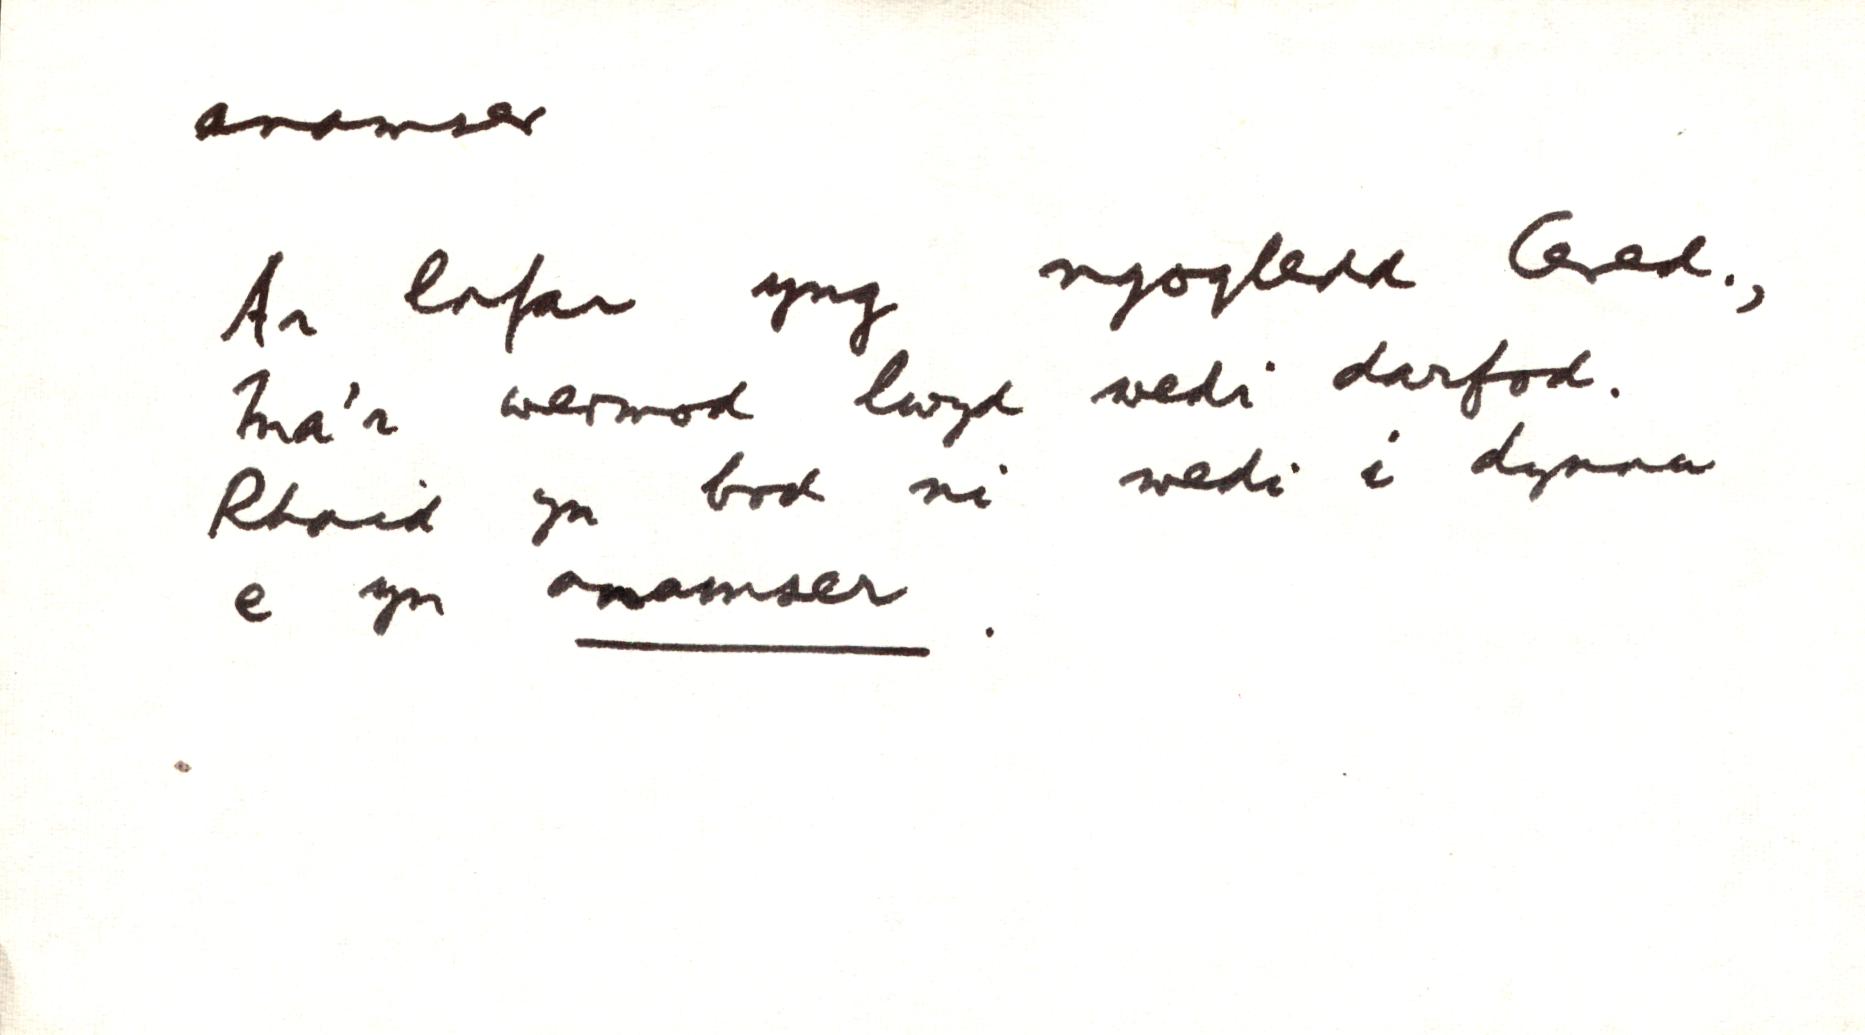 anamser
Ar lafar yng ngogledd Cered.,
Ma'r wermod lwyd wedi darfod.
Rhaid yn bod ni wedi i dynnu
e yn anamser.